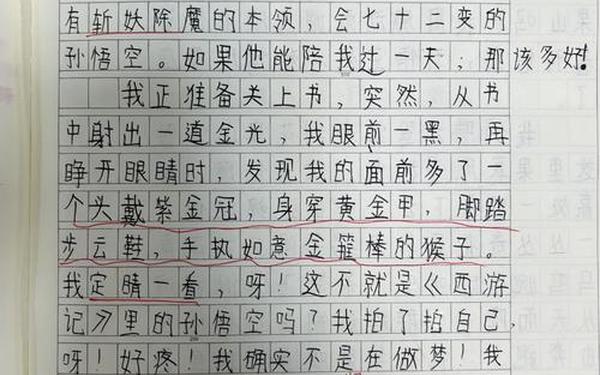 有斩妖除魔的本领，会七十二变的
孙悟空。如果他能陪我过一天，那该多好！
我正准备关上书，突然，从书
中射出一道金光，我眼前一黑，再
睁开眼睛时，发现我的面前多了一
个头戴紫金冠，身穿黄金甲，脚踏
步云鞋，手执如意金箍棒的猴子。
我定睛一看，呀！这不就是《西游
记》里的孙悟空吗？我拍了拍自己，
呀！好疼！我确实不是在做梦！我